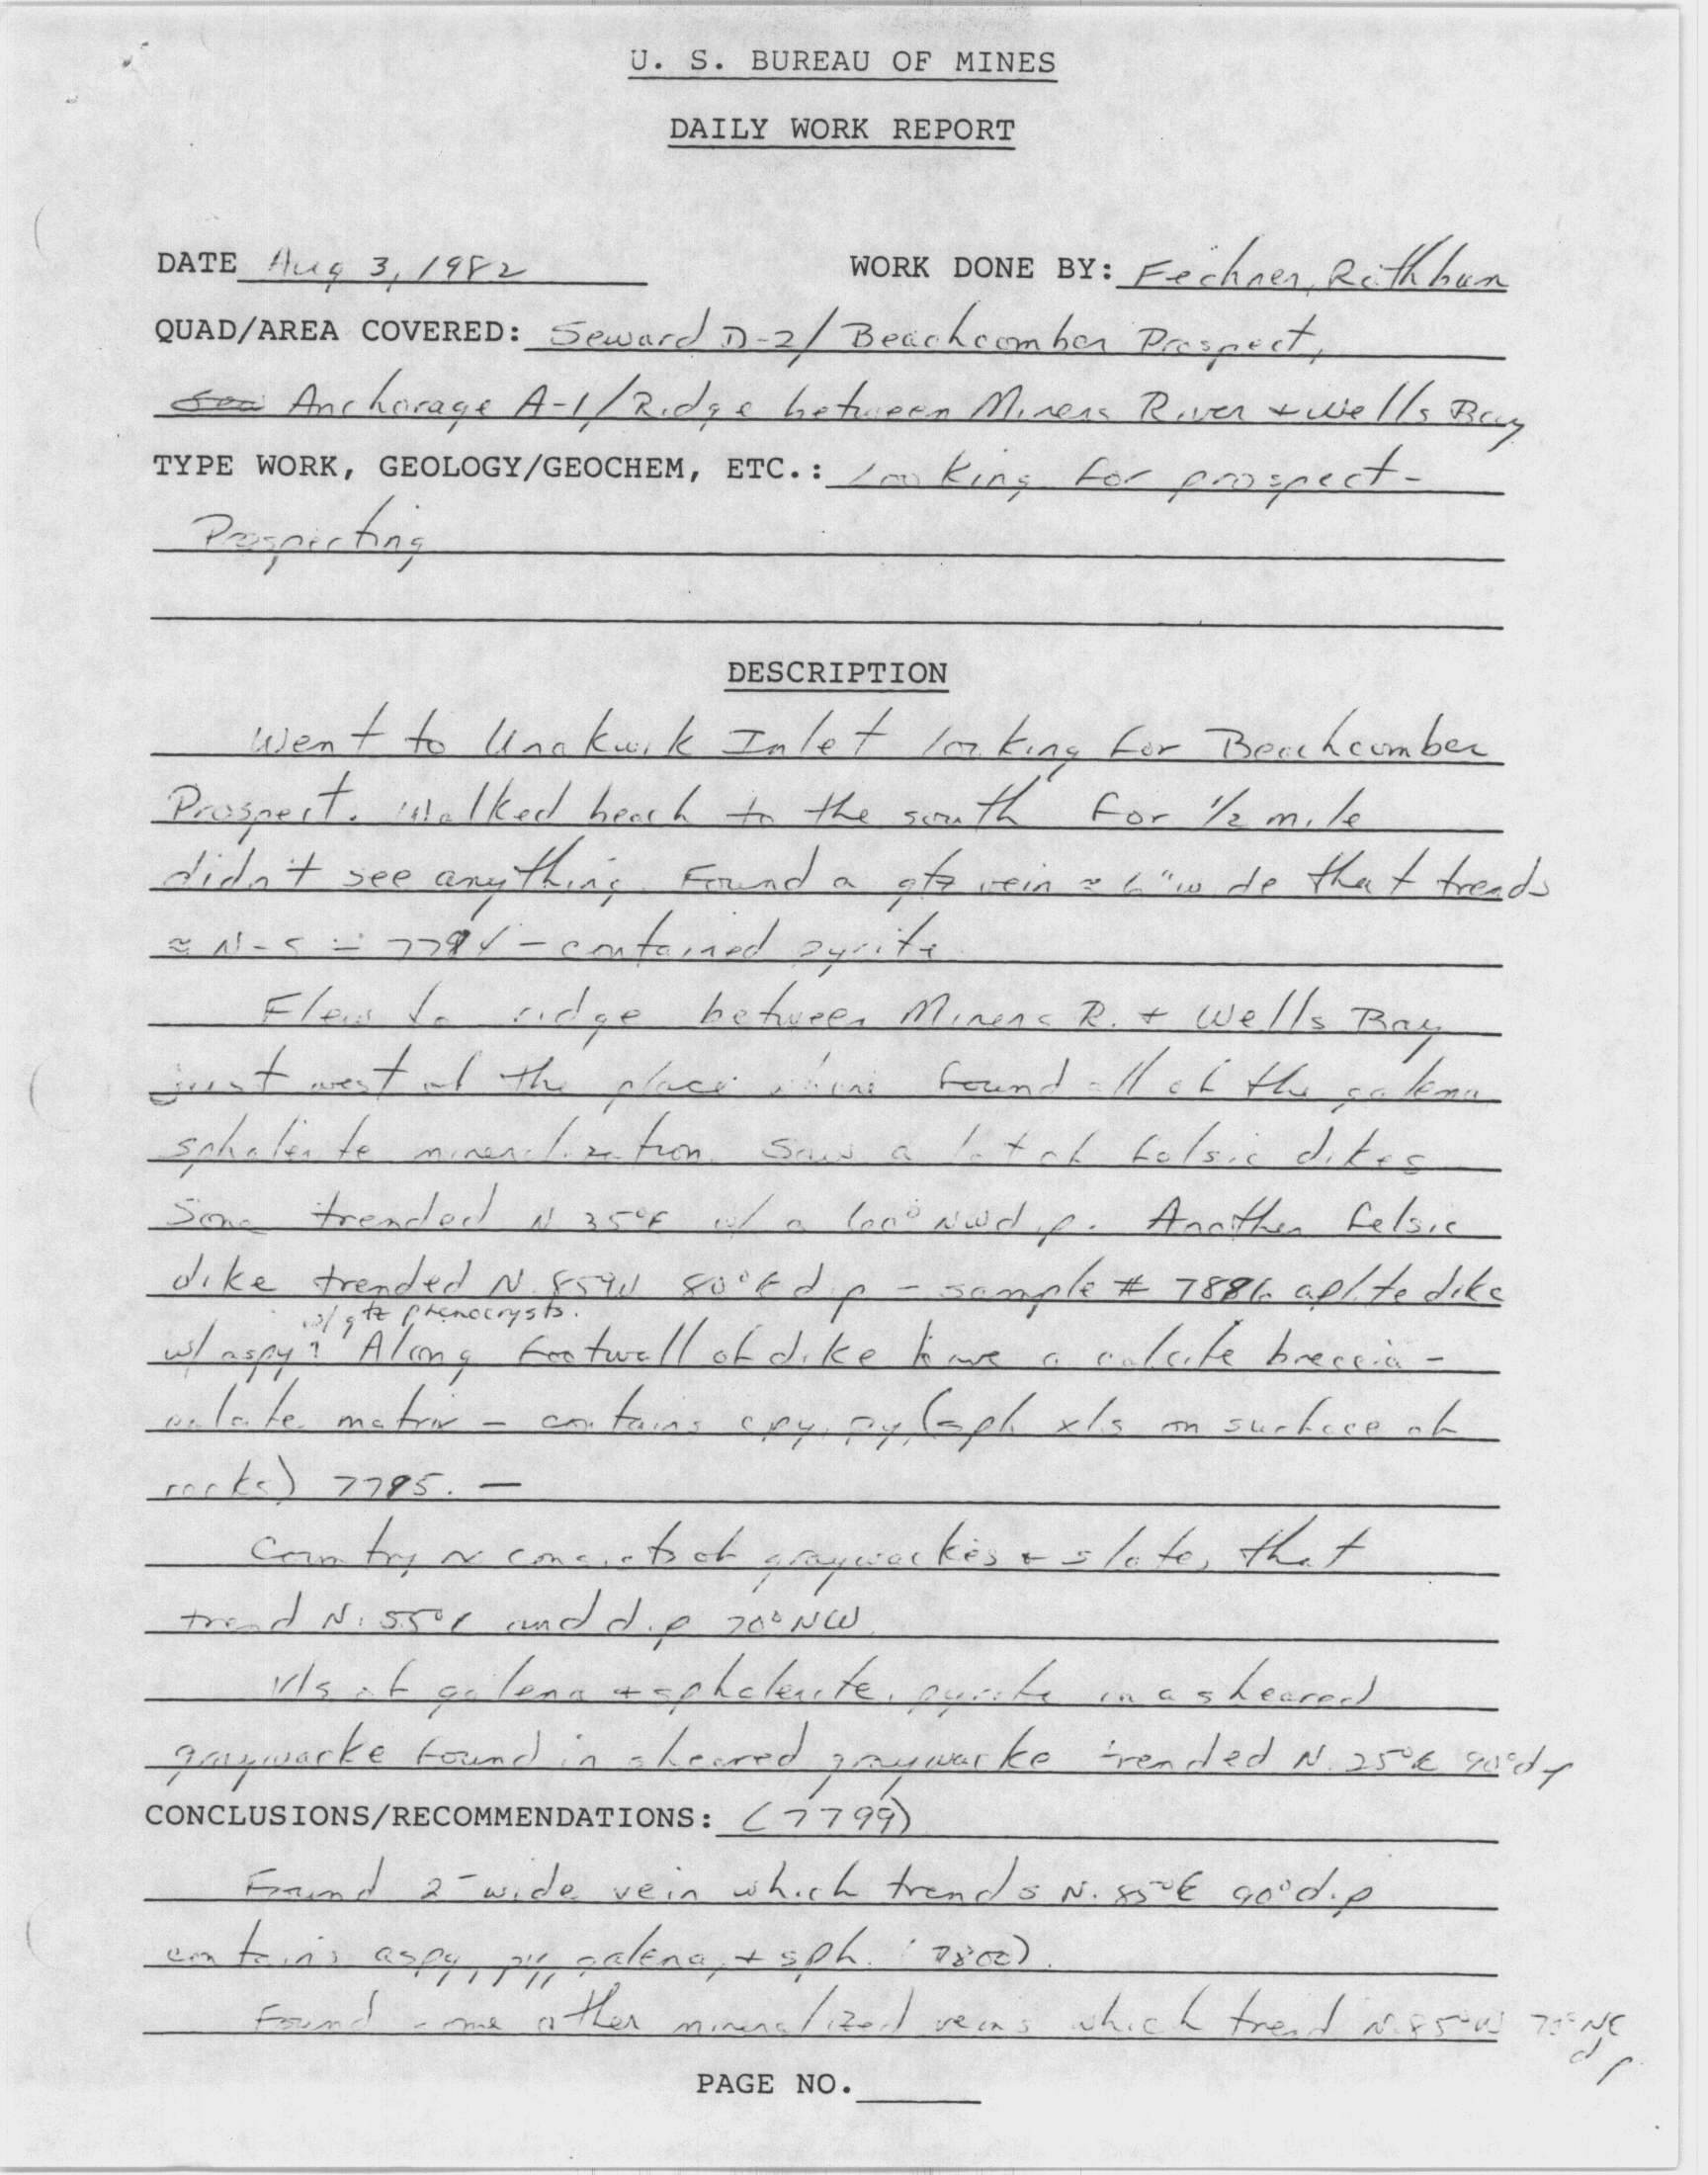 U. S. BUREAU OF MINES
DAILY WORK REPORT
DATE Aug 3, 1982 WORK DONE BY: Fechner, Rathbun
QUAD/AREA COVERED: Seward D-2/ Beachcomber Prospect,
Anchorage A-1/Ridge between Miners River + Wells Bay
TYPE WORK, GEOLOGY/GEOCHEM, ETC.: Looking for prospect-
Prospecting
DESCRIPTION
Went to Unakwik Inlet looking for Beachcomber
Prospect. Walked beach to the south for 1/2 mile
didn't see anything. Found a qtz vein ≈ 6" wide that trends
≈ N-S - 7794 - contained pyrite
Flew to ridge between Miners R. + Wells Bay
just west of the place where found all of the galena
sphalerite mineralization. Saw a lot of felsic dikes
Some trended N 35°E w/ a 60° NW dip. Another felsic
dike trended N. 85°W 80°E dip - sample # 7886 aplite dike
w/ qtz phenocrysts.
w/ aspy? Along footwall of dike have a calcite breccia -
matrix - contains cpy, py, (sph xls on surface of
rocks) 7795. -
Country consists of graywackes + slates that
trend N. 55°E and dip 70° NW
Vls of galena + sphalerite, pyrite in a sheared
graywacke found in sheared graywacke trended N. 25°E 90° dip
CONCLUSIONS/RECOMMENDATIONS: (7799)
Found 2" wide vein which trends N. 85°E 90° dip
contains aspy, py, galena, + sph. (7800).
Found some other mineralized veins which trend N. 85°W 70° NE
dip
PAGE NO.